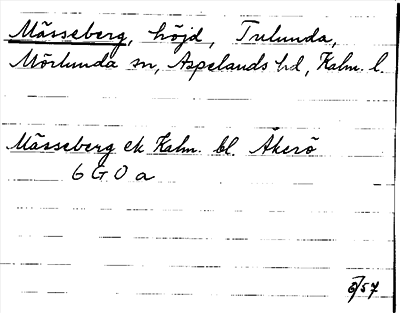 Mässeberg, höjd, Tvlunda,
Mörlunda sn, Aspelands hd, Kalm. l.
Mässeberg ek Kalm. bl. Åkerö
6 G O a
/57